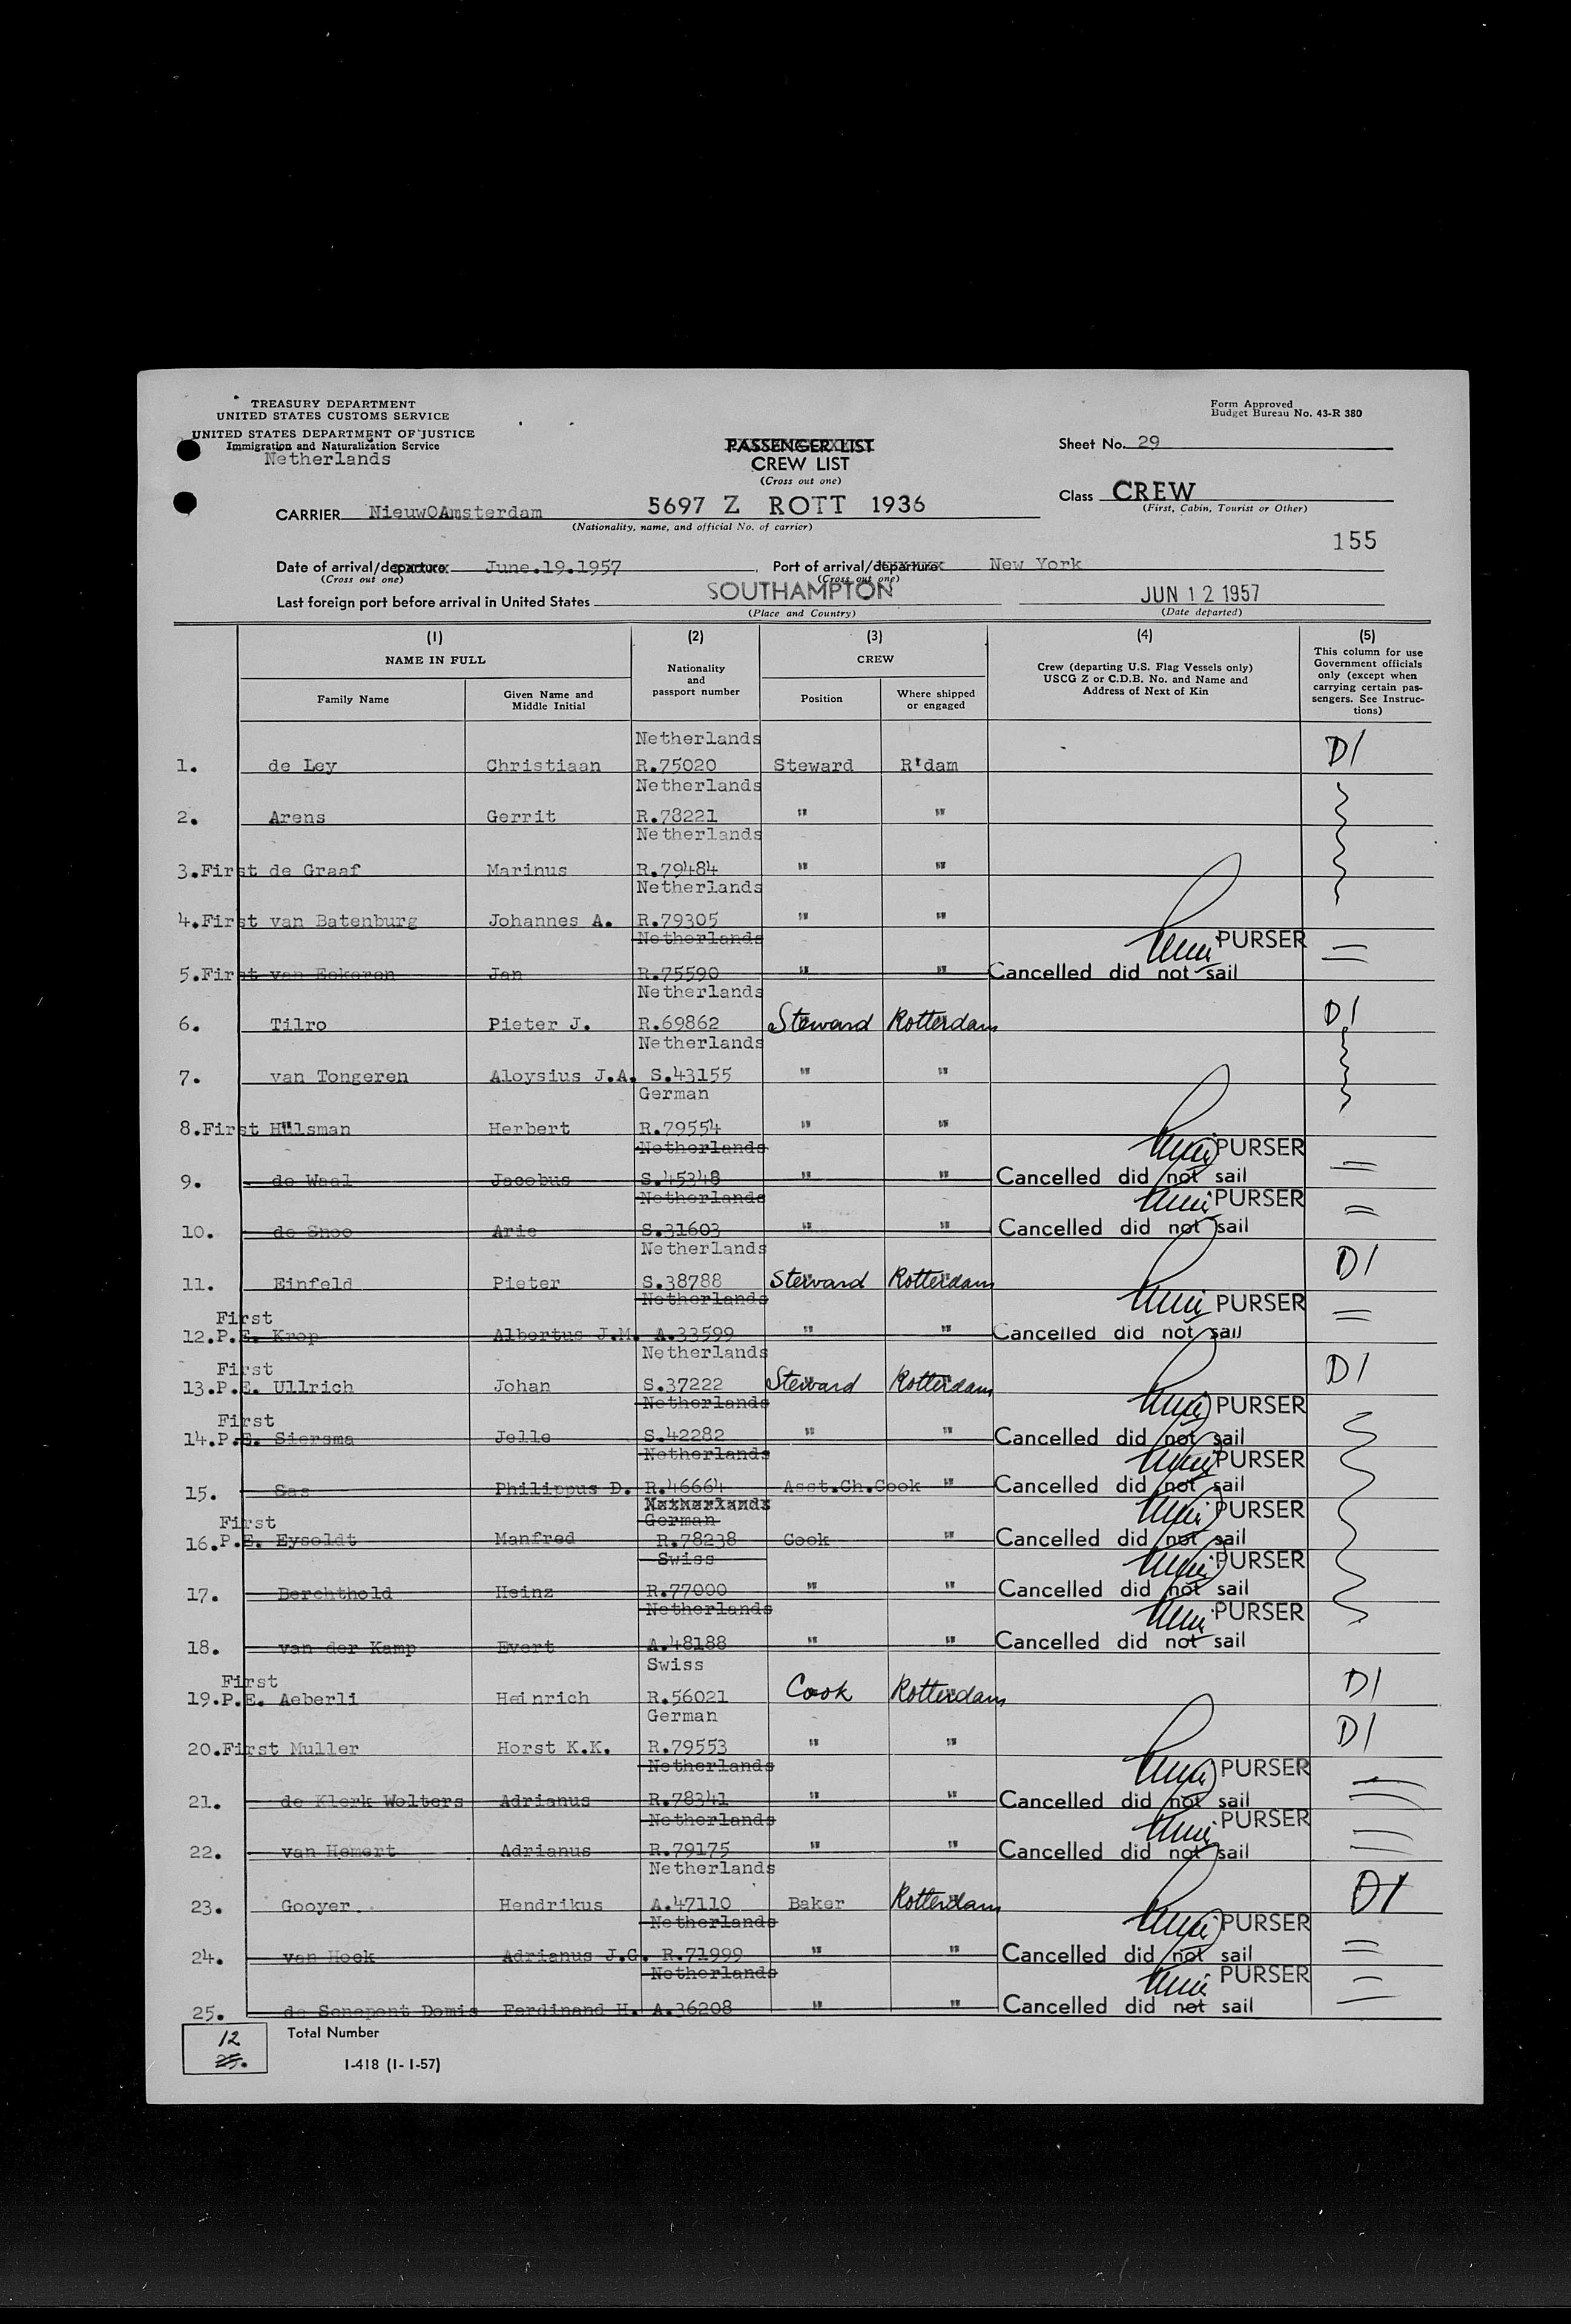 TREASURY DEPARTMENT
UNITED STATES CUSTOMS SERVICE
UNITED STATES DEPARTMENT OF JUSTICE
Immigration and Naturalization Service
Netherlands
Form Approved
Budget Bureau No. 43-R 380
PASSENGER LIST
CREW LIST
(Cross out one)
Sheet No. 29
CARRIER NieuwOAmsterdam 5697 Z ROTT 1936
(Nationality, name, and official No. of carrier)
Class CREW
(First, Cabin, Tourist or Other)
155
Date of arrival/departure June.19.1957 , Port of arrival/departure New York
(Cross out one) (Cross out one)
Last foreign port before arrival in United States SOUTHAMPTON JUN 12 1957
(Place and Country) (Date departed)
(1) (2) (3) (4) (5)
NAME IN FULL
Family Name
Given Name and
Middle Initial
Nationality
and
passport number
CREW
Position
Where shipped
or engaged
Crew (departing U.S. Flag Vessels only)
USCG Z or C.D.B. No. and Name and
Address of Next of Kin
This column for use
Government officials
only (except when
carrying certain pas-
sengers. See Instruc-
tions)
Netherlands
1. de Ley Christiaan R.75020 Steward R'dam D1
Netherlands
2. Arens Gerrit R.78221 " "
Netherlands
3.First de Graaf Marinus R.79484 " "
Netherlands
4.First van Batenburg Johannes A. R.79305 " "
Netherlands PURSER
5.First van Eckeren Jan R.75590 " " Cancelled did not sail
Netherlands
6. Tilro Pieter J. R.69862 Steward Rotterdam D1
Netherlands
7. van Tongeren Aloysius J.A. S.43155 " "
German
8.First Hülsman Herbert R.79554 " "
Netherlands PURSER
9. de Waal Jacobus S.45348 " " Cancelled did not sail
Netherlands PURSER
10. de Snoo Arie S.31603 " " Cancelled did not sail
Netherlands
11. Einfeld Pieter S.38788 Steward Rotterdam D1
Netherlands PURSER
First
12.P.E. Krop Albertus J.M. A.33599 " " Cancelled did not sail
Netherlands
First
13.P.E. Ullrich Johan S.37222 Steward Rotterdam D1
Netherlands PURSER
First
14.P.E. Siersma Jelle S.42282 " " Cancelled did not sail
Netherlands PURSER
15. Sas Philippus D. R.46664 Asst.Ch.Cook " Cancelled did not sail
Netherlands PURSER
First German
16.P.E. Eysoldt Manfred R.78238 Cook " Cancelled did not sail
Swiss PURSER
17. Berchthold Heinz R.77000 " " Cancelled did not sail
Netherlands PURSER
18. van der Kamp Evert A.48188 " " Cancelled did not sail
Swiss
First
19.P.E. Aeberli Heinrich R.56021 Cook Rotterdam D1
German
20.First Muller Horst K.K. R.79553 " " D1
Netherlands PURSER
21. de Klerk Wolters Adrianus R.78341 " " Cancelled did not sail
Netherlands PURSER
22. van Hemert Adrianus R.79175 " " Cancelled did not sail
Netherlands
23. Gooyer. Hendrikus A.47110 Baker Rotterdam D1
Netherlands PURSER
24. van Hoek Adrianus J.G. R.71999 " " Cancelled did not sail
Netherlands PURSER
25. de Senepont Domis Ferdinand H. A.36208 " " Cancelled did not sail
12
25.
Total Number
I-418 (1-1-57)